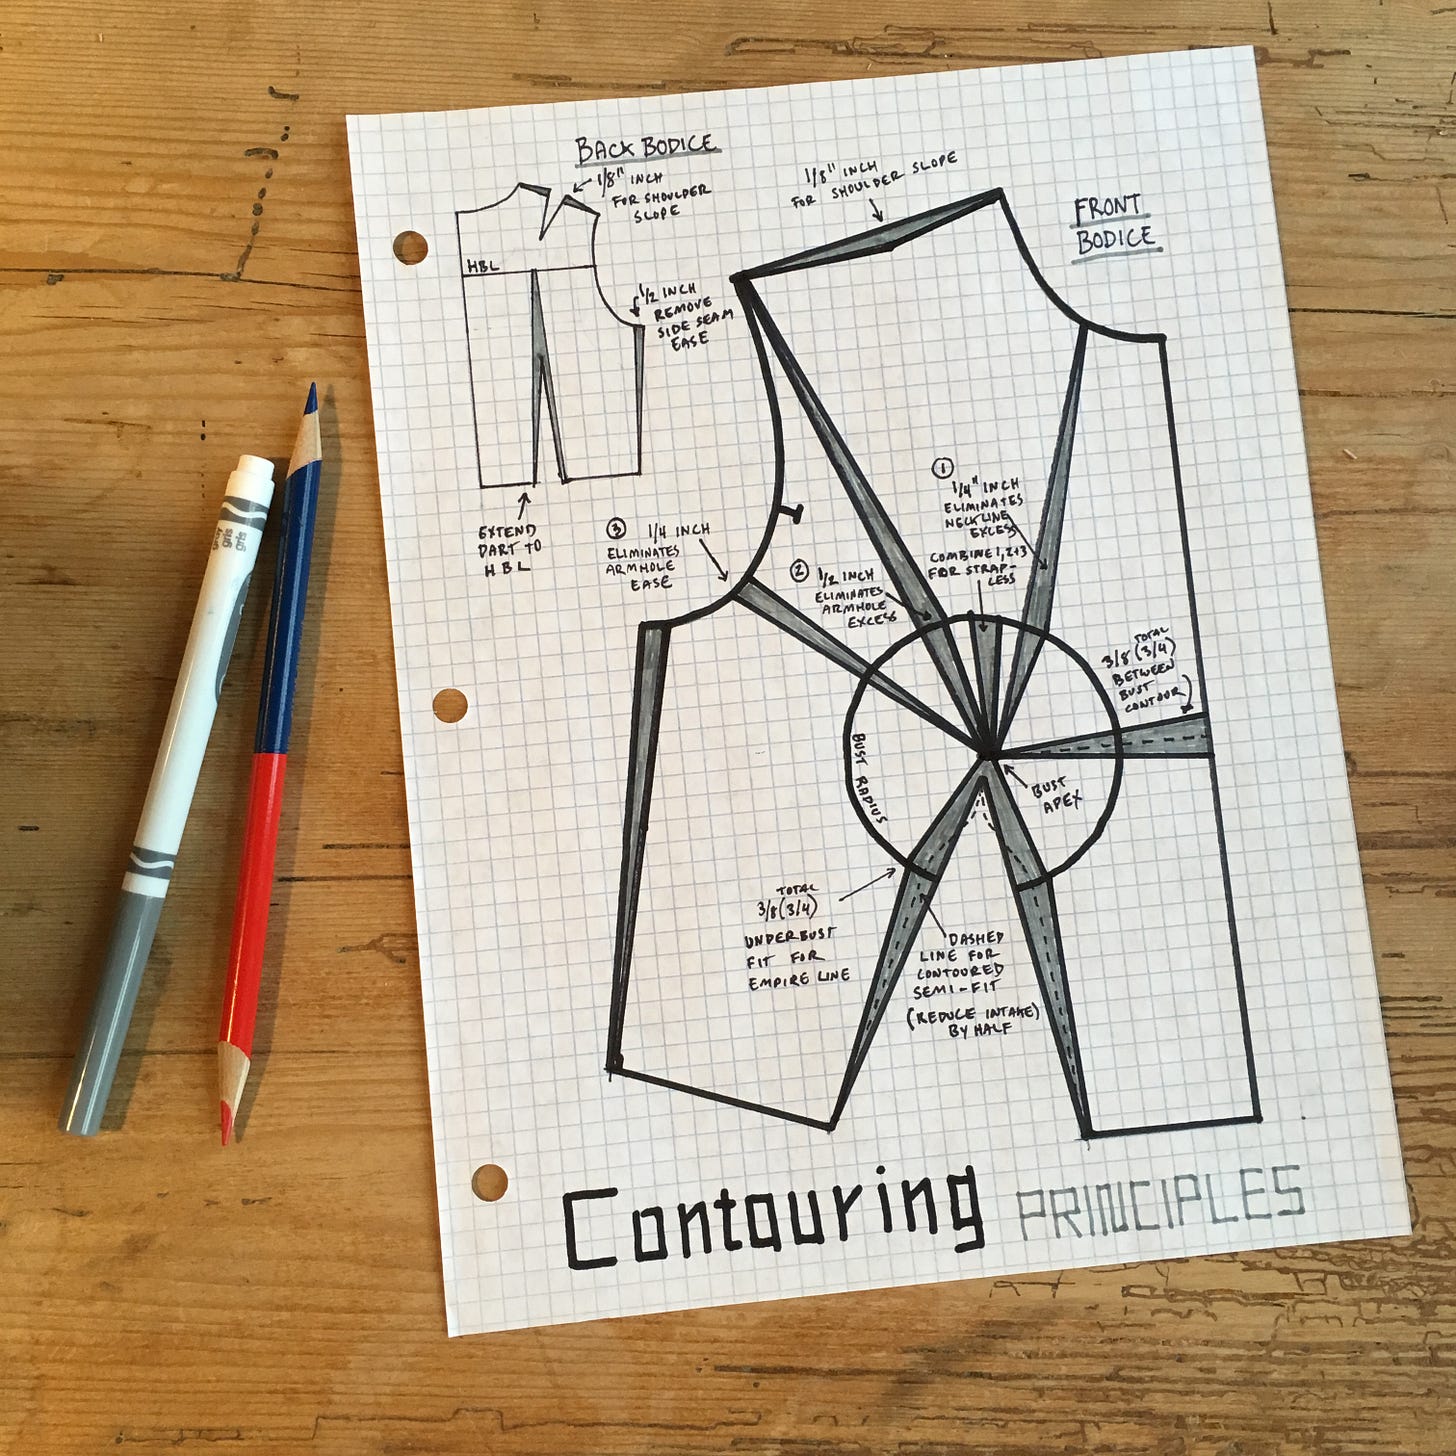 BACK BODICE
1/8" INCH
FOR SHOULDER
SLOPE
HBL
1/2 INCH
REMOVE
SIDE SEAM
EASE
EXTEND
DART TO
HBL
1/8" INCH
FOR SHOULDER SLOPE
FRONT
BODICE
1
1/4" INCH
ELIMINATES
NECKLINE
EXCESS
COMBINE 1, 2+3
FOR STRAP-
LESS
3 1/4 INCH
ELIMINATES
ARMHOLE
EASE
2 1/2 INCH
ELIMINATES
ARMHOLE
EXCESS
TOTAL
3/8 (3/4)
BETWEEN
BUST
CONTOUR
BUST RADIUS
BUST
APEX
TOTAL
3/8 (3/4)
UNDERBUST
FIT FOR
EMPIRE LINE
DASHED
LINE FOR
CONTOURED
SEMI-FIT
(REDUCE INTAKE)
BY HALF
Contouring PRINCIPLES
gris
gris